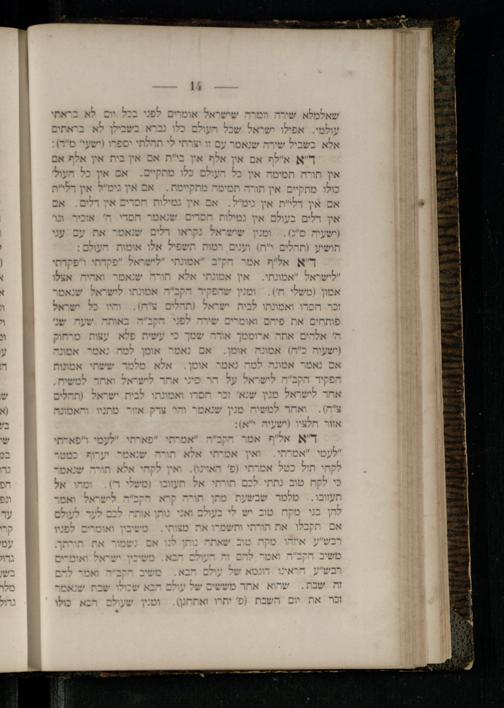 — 14 —
שאלמלא שירה וזמרה שישראל אומרים לפני בכל יום לא בראתי
עולמי. אפילו ישראל שבכל העולם כלו נברא בשבילן לא בראתים
אלא בשביל שירה שנאמר עם זו יצרתי לי תהלתי יספרו (ישעי' מ"ד):
ד"א א"לף אם אין אלף אין בי"ת אם אין בית אין אלף אם
אין תורה תמימה אין כל העולם כלו מתקיים. אם אין כל העול'
כולו מתקיים אין תורה תמימה מתקיימת. אם אין גימ"ל אין דלי"ת
אם אין דלי"ת אין גימ"ל. אם אין גמילות חסדים אין דלים. אם
אין דלים בעולם אין גמילות חסדים שנאמר חסדי ה' אזכיר וגו'
(ישעיה ס"ג). ומנין שישראל נקראו דלים שנאמר את עם עני
תושיע (תהלים י"ח) ועינים רמות תשפיל אלו אומות העולם:
ד"א אל"ף אמר הקב"ה "אמונתי "לישראל "פקדתי ו"פקדתי
"לישראל "אמונתי. אין אמונתי אלא תורה שנאמר ואהיה אצלו
אמון (משלי ח'). ומנין שהפקיד הקב"ה אמונתו לישראל שנאמר
זכר חסדו ואמונתו לבית ישראל (תהלים צ"ח). והיו כל ישראל
פותחים את פיהם ואומרים שירה לפני הקב"ה באותה שעה שנ'
ה' אלהים אתה ארוממך אודה שמך כי עשית פלא עצות מרחוק
(ישעיה כ"ה) אמונה אומן. אם נאמר אומן למה נאמר אמונה
אם נאמר אמונה למה נאמר אומן. אלא מלמד ששתי אמונות
הפקיד הקב"ה לישראל על הר סיני אחד לישראל ואחד למשיח.
אחד לישראל מנין שנא' זכר חסדו ואמונתו לבית ישראל (תהלים
צ"ח). ואחד למשיח מנין שנאמר והי' צדק אזור מתניו והאמונה
אזור חלציו (ישעיה י"א):
ד"א אל"ף אמר הקב"ה "אמרתי "פארתי "לעמי ו"פארתי
"לעמי "אמרתי. ואין אמרתי אלא תורה שנאמר יערוף כמטר
לקחי תזל כטל אמרתי (פ' האזינו). ואין לקחי אלא תורה שנאמר
כי לקח טוב נתתי לכם תורתי אל תעזובו (משלי ד'). ומהו אל
תעזובו. מלמד שבשעת מתן תורה קרא הקב"ה לישראל ואמר
להן בני מקח טוב יש לי בעולם ואני נותן אותה לכם לעד לעולם
אם תקבלו את תורתי ותשמרו את מצותי. משיבין ואומרים לפניו
רבש"ע איזהו מקח טוב שאתה נותן לנו אם נשמור את תורתך.
משיב הקב"ה ואמר להם זה העולם הבא. משיבין ישראל ואומרים
רבש"ע הראינו דוגמא של עולם הבא. משיב הקב"ה ואמר להם
זה שבת. שהוא אחד מששים של עולם הבא שכולו שבת שנאמר
זכר את יום השבת (פ' יתרו ואתחנן). ומנין שעולם הבא כולו